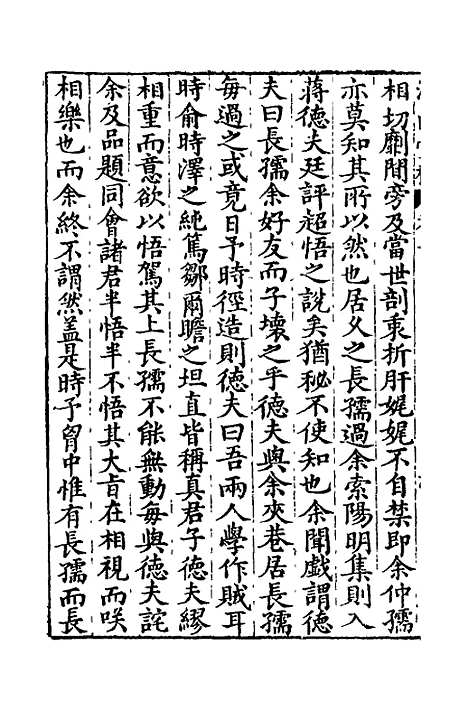 相切劘間旁及當世剖乘析肝娓娓不自禁即余仲孺
亦莫知其所以然也居久之長孺過余索陽明集則入
蔣德夫廷評超悟之說矣猶秘不使知也余聞戲謂德
夫曰長孺余好友而子壞之乎德夫與余夾巷居長孺
每過之或竟日予時徑造則德夫曰吾兩人學作賊耳
時俞時澤之純篤鄒爾瞻之坦直皆稱真君子德夫繆
相重而意欲以悟駕其上長孺不能無動每與德夫詫
余及品題同會諸君半悟半不悟其大旨在相視而咲
相樂也而余終不謂然盖是時予胷中惟有長孺而長